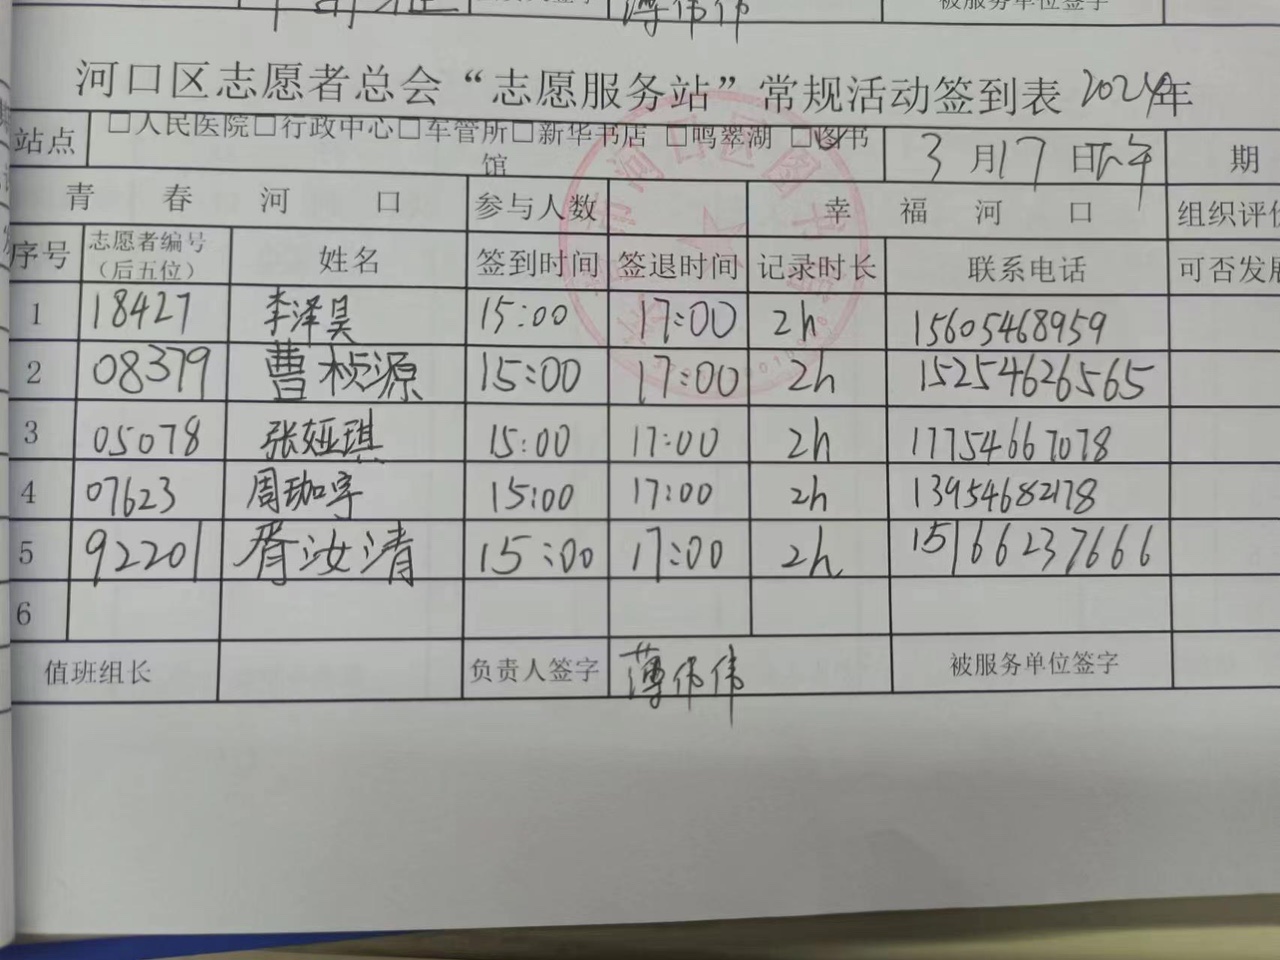 薄伟伟
被服务单位签字
河口区志愿者总会“志愿服务站”常规活动签到表 2024年
站点 □人民医院□行政中心□车管所□新华书店 □鸣翠湖 ☑图书馆 3月17日下午 期
青春河口 参与人数 幸福河口 组织评价
序号 志愿者编号（后五位） 姓名 签到时间 签退时间 记录时长 联系电话 可否发展
1 18427 李泽昊 15:00 17:00 2h 15605468959
2 08379 曹桢源 15:00 17:00 2h 15254626565
3 05078 张娅琪 15:00 17:00 2h 17754667078
4 07623 周珈宇 15:00 17:00 2h 13954682178
5 92201 胥汝清 15:00 17:00 2h 15166237666
6
值班组长 负责人签字 薄伟伟 被服务单位签字